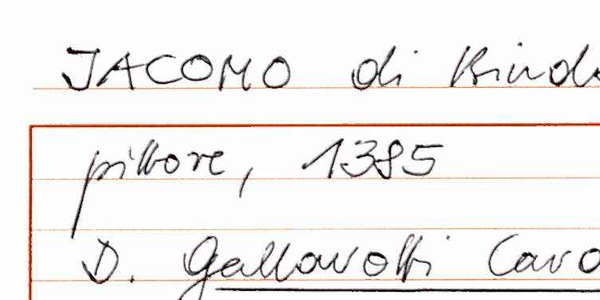 JACOMO di Bind
pittore, 1385
D. Gallavotti Cava